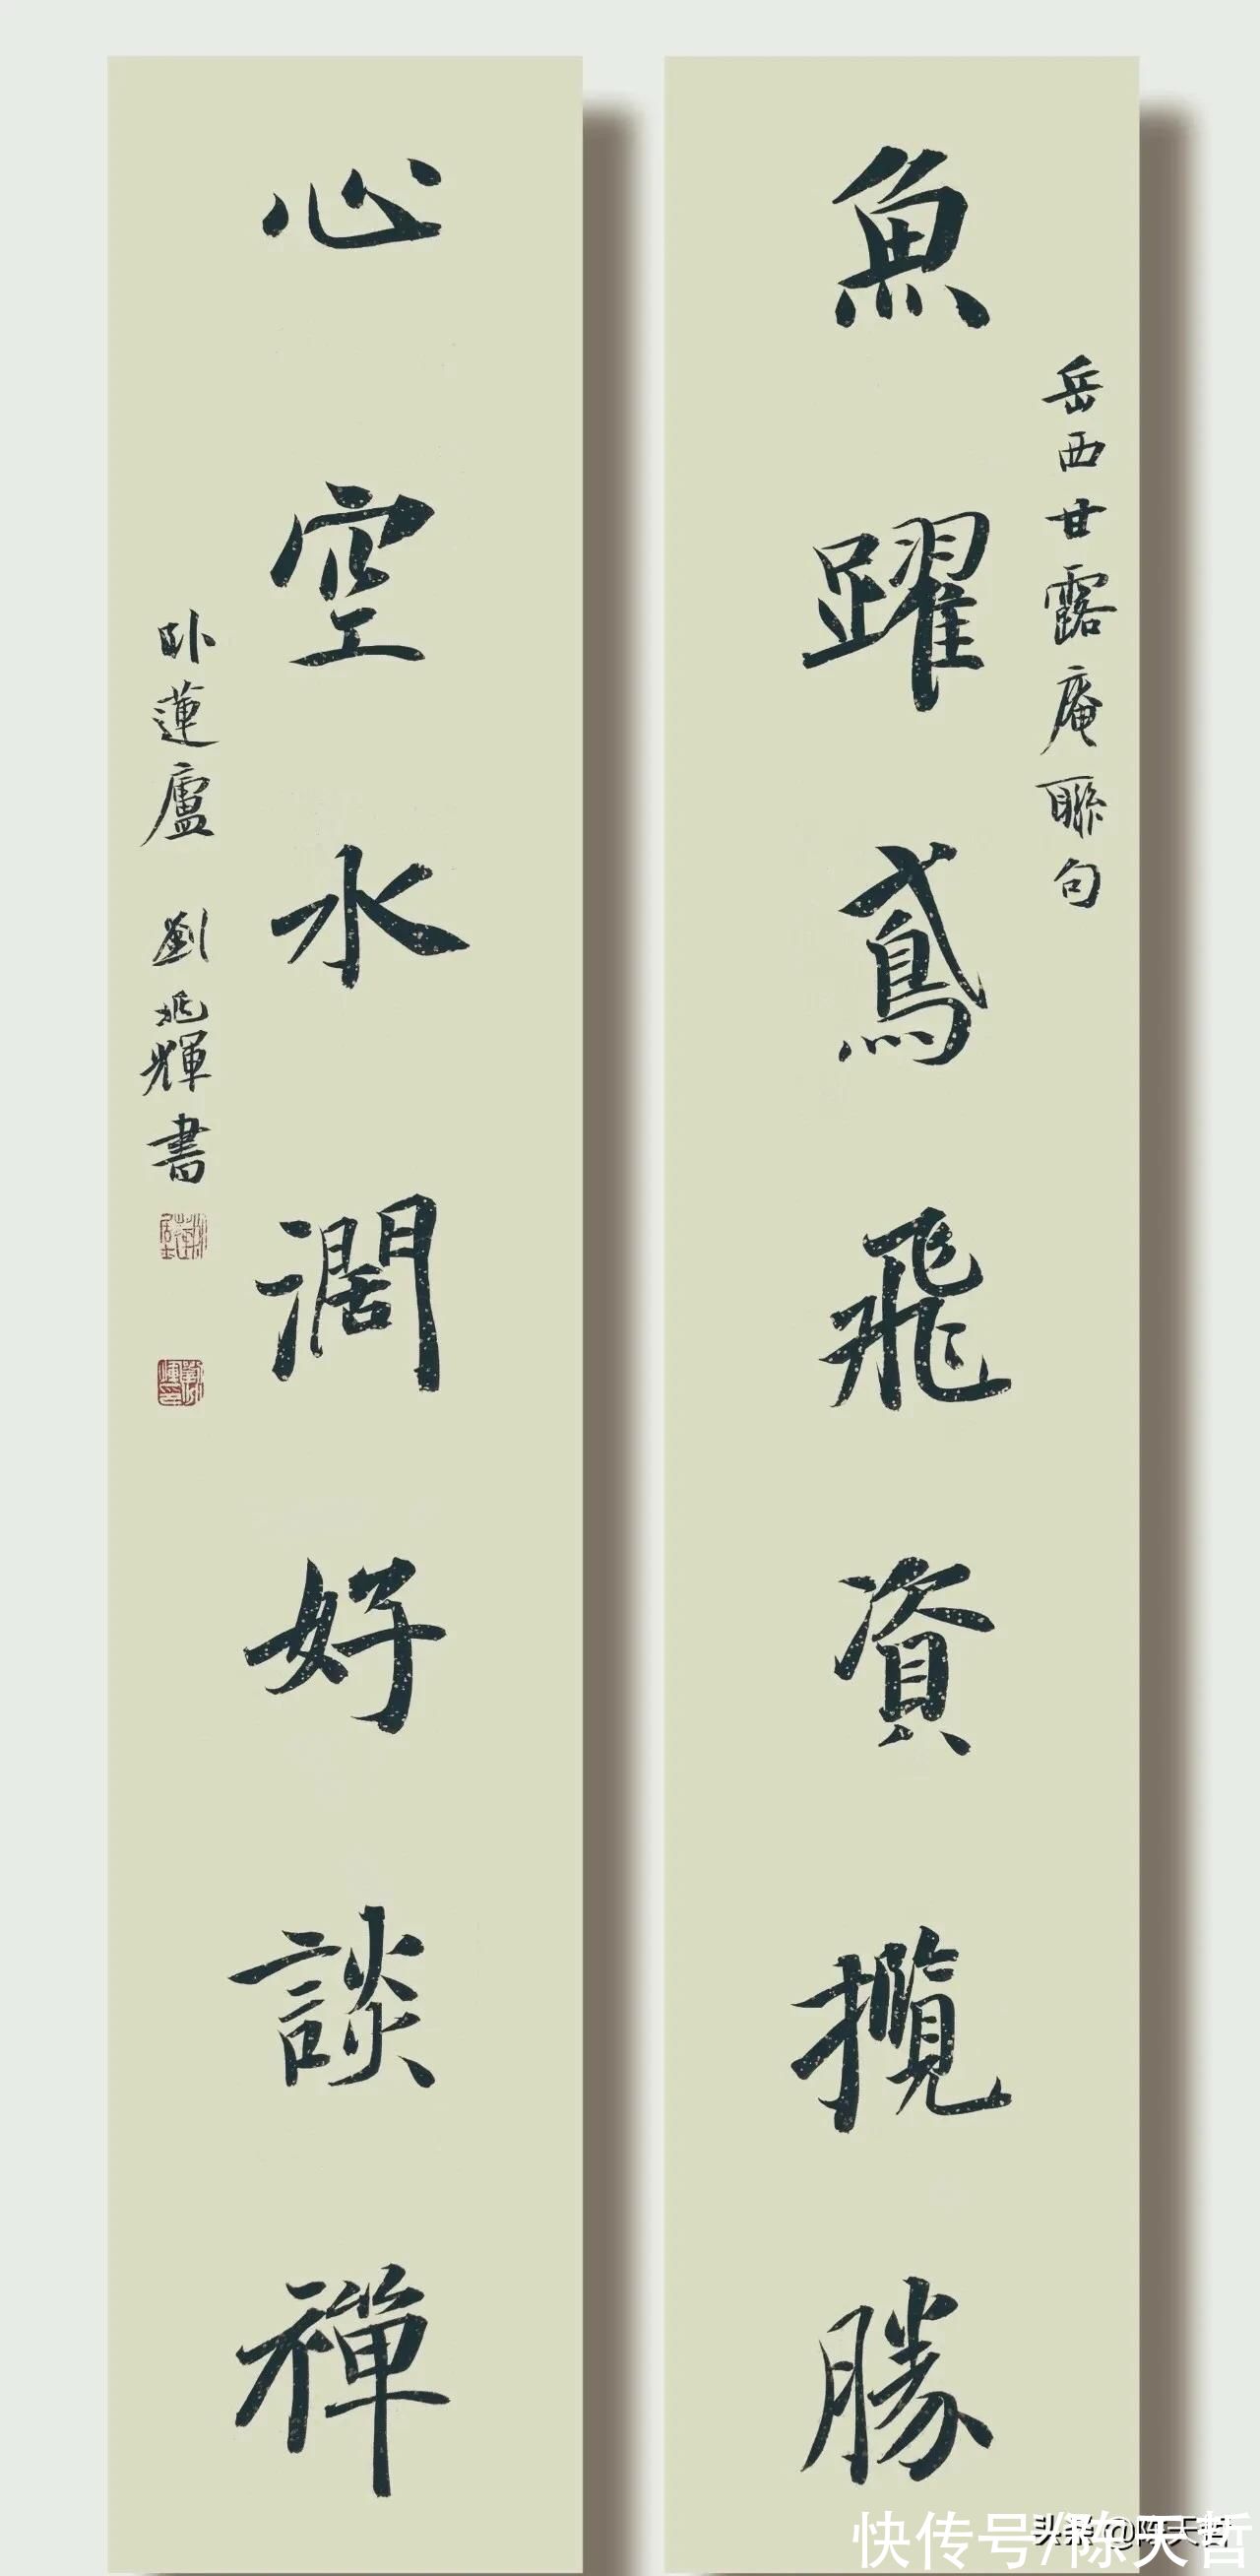 魚躍鳶飛資攬勝
岳西甘露庵聯句
心空水濶好談禪
卧蓮廬 劉兆輝書
快传号/陈天哲
头条@陈天哲